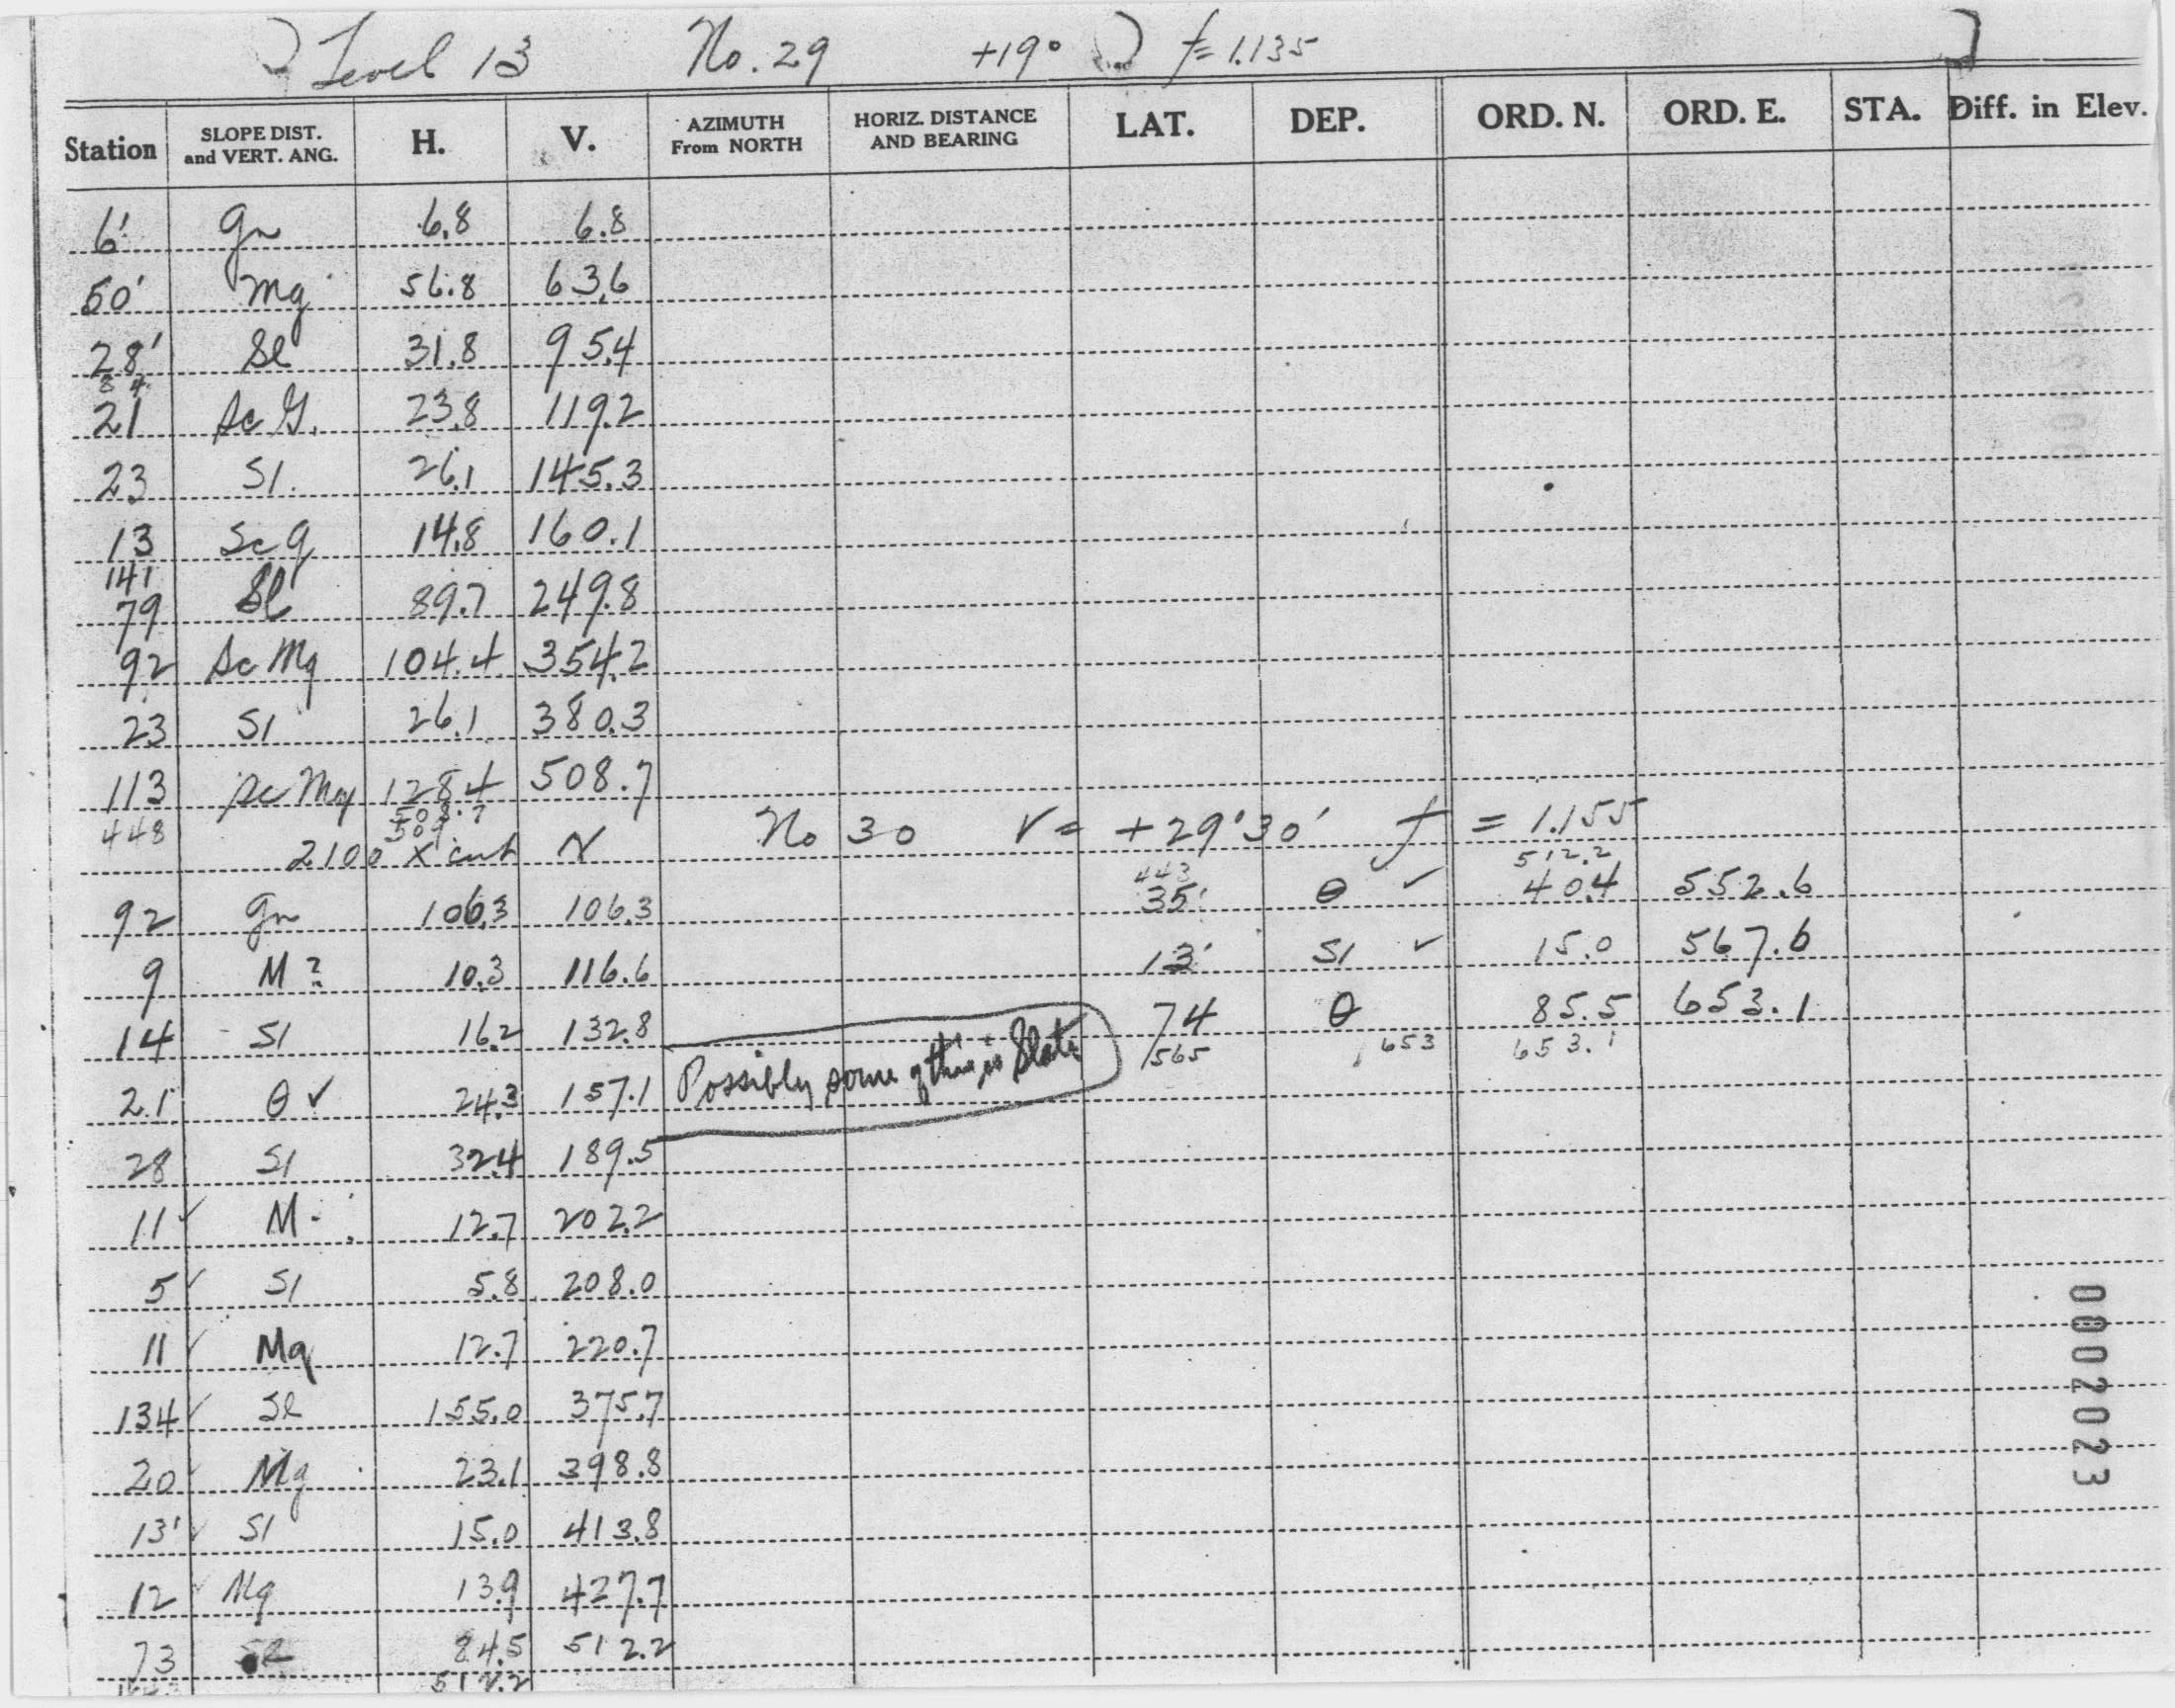 Level 13 No. 29 +19° f= 1.135
Station SLOPE DIST. and VERT. ANG. H. V. AZIMUTH From NORTH HORIZ. DISTANCE AND BEARING LAT. DEP. ORD. N. ORD. E. STA. Diff. in Elev.
6' Gn 6.8 6.8
50' Mg 56.8 63.6
28' Sl 31.8 95.4
84
21 Sc G. 23.8 119.2
23 Sl. 26.1 145.3
13 Sc g 14.8 160.1
141
79 Sl 89.7 249.8
92 Sc Mg 104.4 354.2
23 Sl 26.1 380.3
113 Sc Mg 128.4 508.7
448 508.7
509
2100 X cut N No 30 V = +29°30' f = 1.155
443 512.2
92 Gn 106.3 106.3 35' θ ✓ 40.4 552.6
9 M? 10.3 116.6 13' Sl ✓ 15.0 567.6
14 Sl 16.2 132.8 74 θ 85.5 653.1
565 653 653.1
21 θ ✓ 24.3 157.1 Possibly some of this is Slate
28 Sl 32.4 189.5
11 ✓ M. 12.7 202.2
5 ✓ Sl 5.8 208.0
11 ✓ Mg 12.7 220.7
134 ✓ Sl 155.0 375.7
20 ✓ Mg 23.1 398.8
13' ✓ Sl 15.0 413.8
12 ✓ Mg 13.9 427.7
73 Sl 84.5 512.2
512.2
0002023